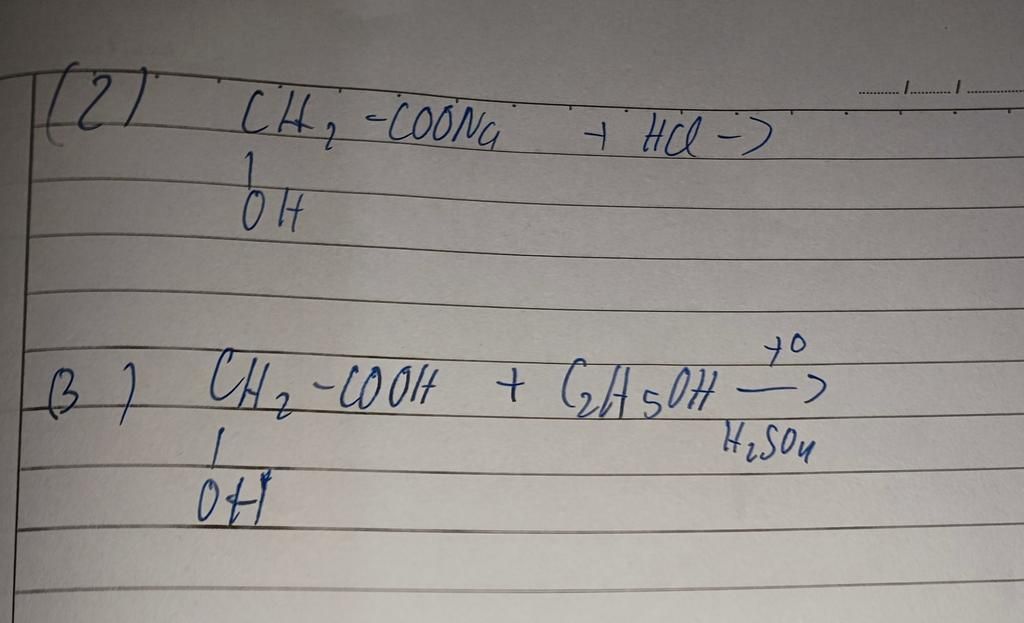 (2) CH₂ -COONa + HCl ->
|
OH
(3) CH₂ -COOH + C₂H₅OH —>
t⁰
H₂SO₄
|
OH